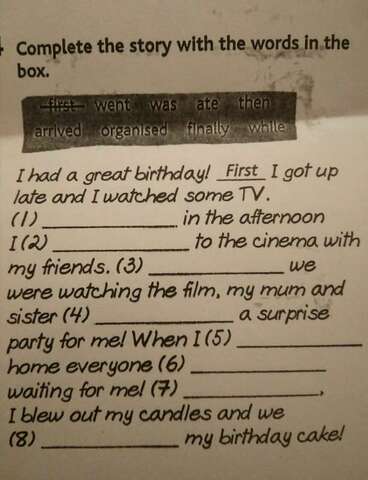 Complete the story with the words in the
box.
first went was ate then
arrived organised finally while
I had a great birthday! First I got up
late and I watched some TV.
(1) ____________ in the afternoon
I (2) ____________ to the cinema with
my friends. (3) ____________ we
were watching the film, my mum and
sister (4) ____________ a surprise
party for me! When I (5) ____________
home everyone (6) ____________
waiting for me! (7) ____________,
I blew out my candles and we
(8) ____________ my birthday cake!